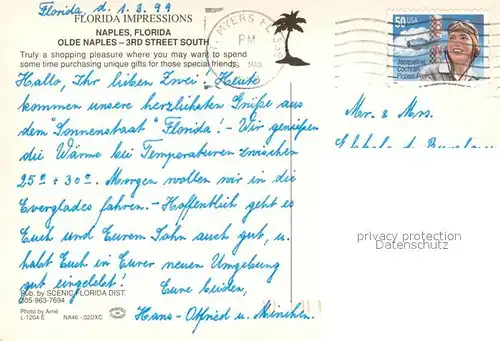 Florida d. 1.3.99
FLORIDA IMPRESSIONS
NAPLES, FLORIDA
OLDE NAPLES -- 3RD STREET SOUTH
Truly a shopping pleasure where you may want to spend
some time purchasing unique gifts for those special friends.
Hallo, Ihr lieben Zwei! Heute
kommen unsere herzlichsten Grüße aus
dem "Sonnenstaat" Florida! - Wir genießen
die Wärme bei Temperaturen zwischen
25º + 30º. Morgen wollen wir in die
Everglades fahren. - Hoffentlich geht es
Euch und Eurem Sohn auch gut, u.
habt Euch in Eurer neuen Umgebung
gut eingelebt!
Eure beiden,
Hans-Otfried u. Minchen.
Pub. by SCENIC FLORIDA DIST.
305-963-7694
Photo by Arné
L-1204-E
NA46-02DXC
MYERS
PM
50 USA
Jacqueline
Cochran
Pioneer
Mr. & Mrs.
privacy protection
Datenschutz